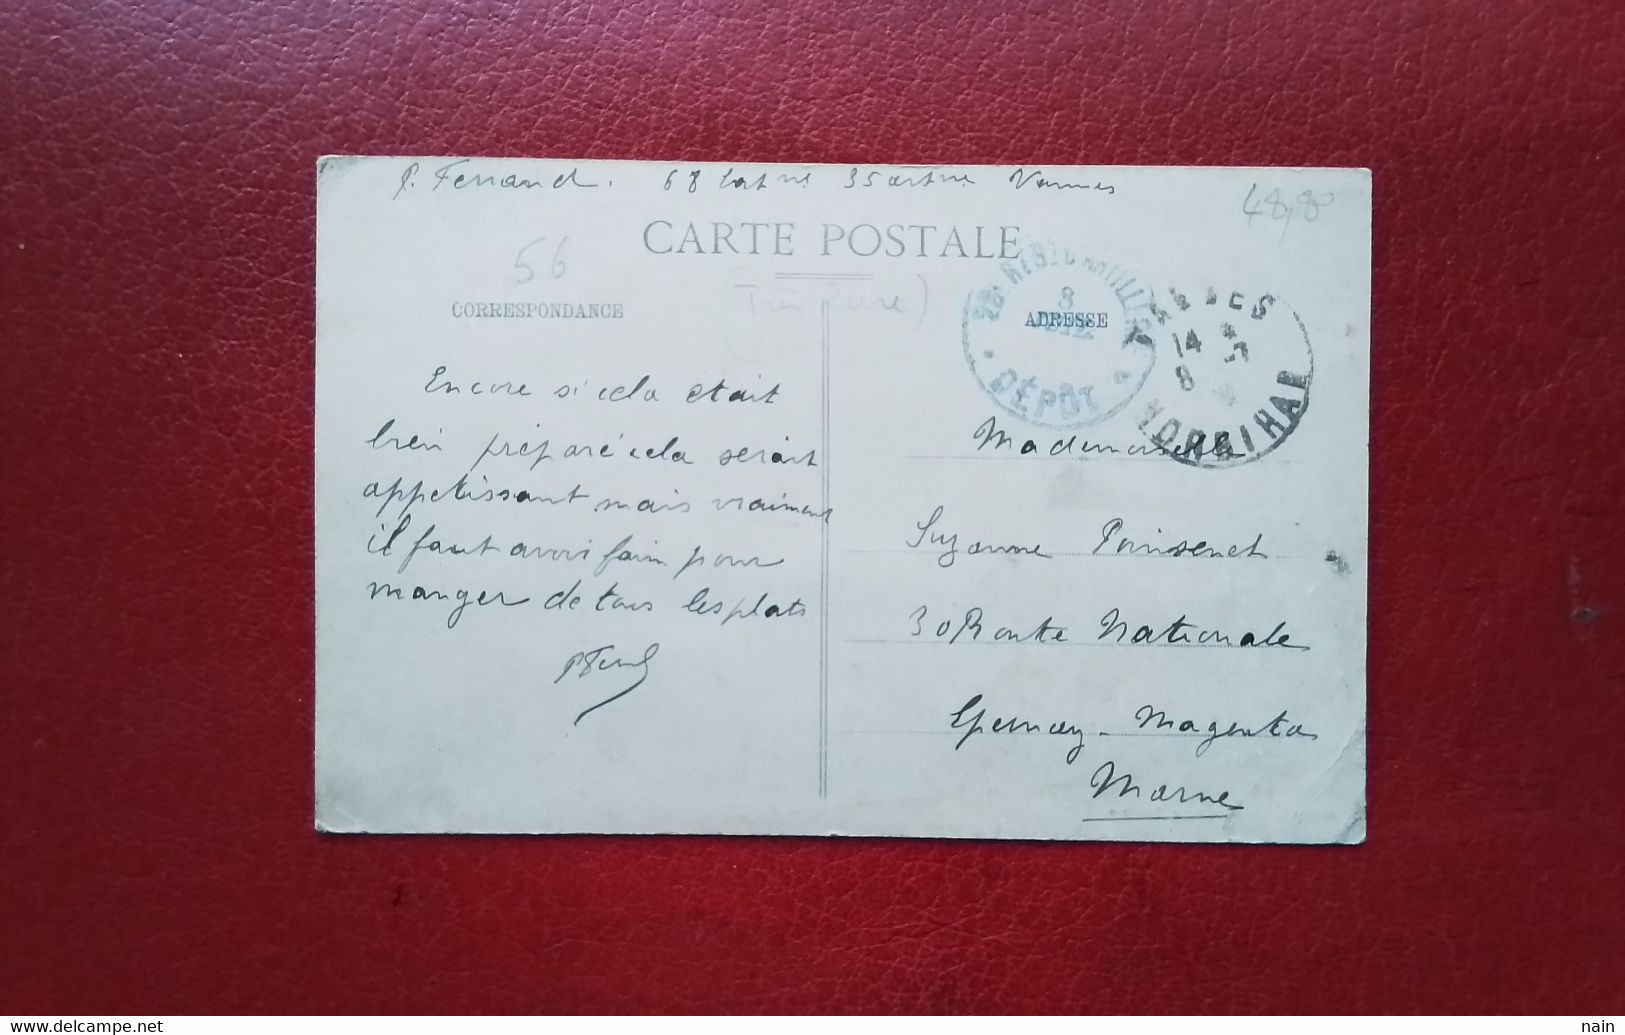 P. Ferrand. 68 bat rie 35 art rie Vannes
48,80
CARTE POSTALE
56
(Très Rare)
CORRESPONDANCE
ADRESSE
28e RÉGt D'ARTILLERIE
8
DÉPÔT
VANNES
14
8
MORBIHAN
Encore si cela était
bien préparé cela serait
appetissant mais vraiment
il faut avoir faim pour
manger de tous les plats
PFerrd
Mademoiselle
Suzanne Poinsenet
30 Route Nationale
Epernay - Magenta
Marne
www.delcampe.net
nain